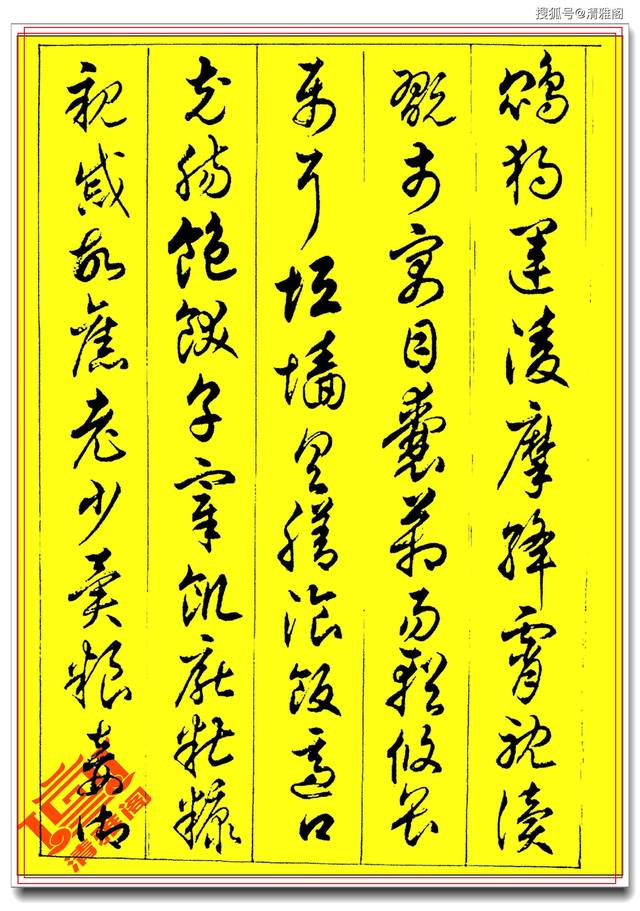 搜狐号@清雅阁
鵾獨運凌摩絳霄耽讀
翫市寓目囊箱易輶攸畏
屬耳垣墻具膳飡飯適口
充腸飽飫烹宰飢厭糟糠
親戚故舊老少異糧妾御
清雅阁